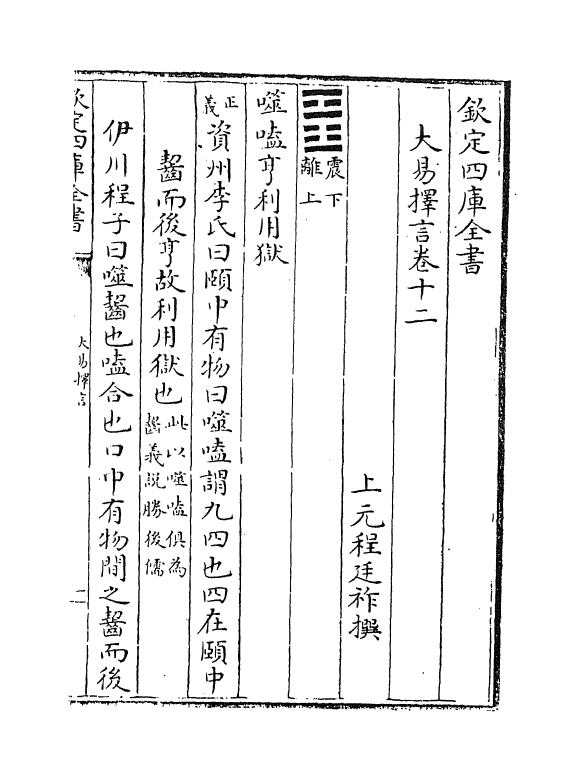 欽定四庫全書
大易擇言卷十二
上元程廷祚撰
震下
離上
噬嗑亨利用獄
正義
資州李氏曰頤中有物曰噬嗑謂九四也四在頤中
齧而後亨故利用獄也
此以噬嗑俱為
齧義説勝後儒
伊川程子曰噬齧也嗑合也口中有物間之齧而後
欽定四庫全書
大易擇言